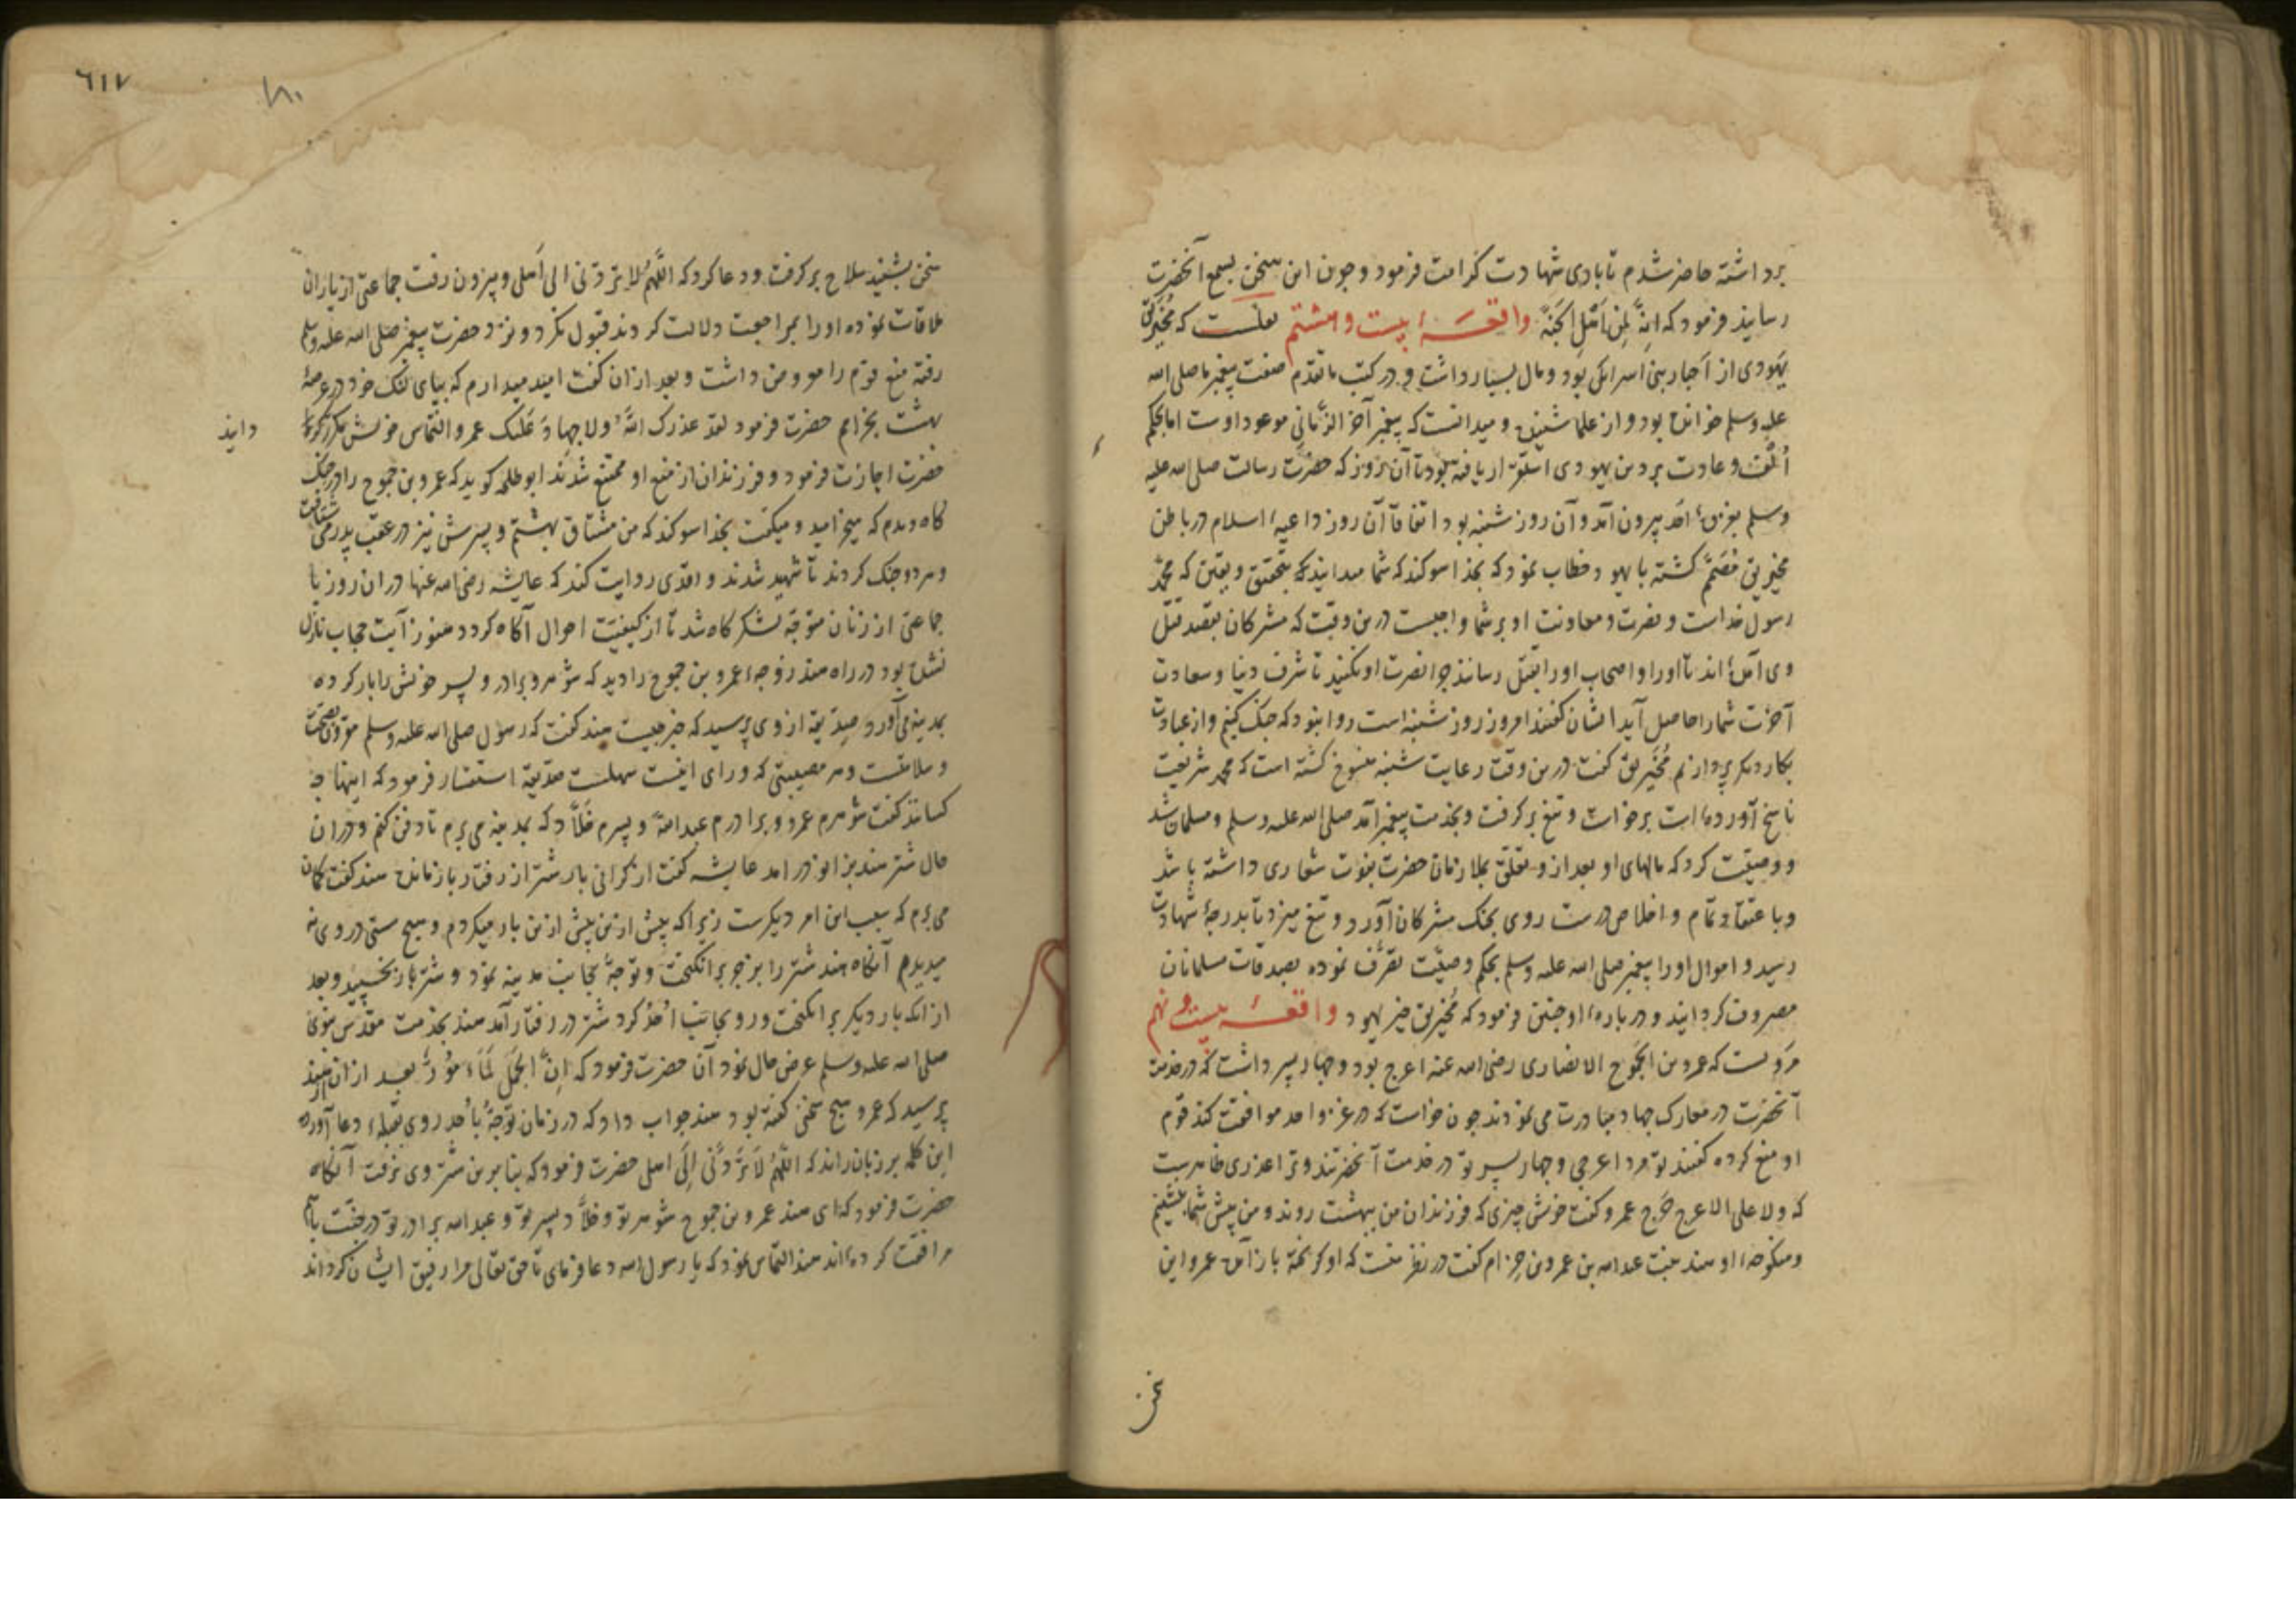 برداشته حاضر شدم تا بادی شهادت کرامت فرمود و چون این سخن بسمع آنحضرت
رسانید فرمود که انه لمن اهل الجنة واقعهٔ بیست و هشتم نقلست که مخیریق
یهودی از احبار بنی اسرائیل بود و مال بسیار داشت و در کتب ما تقدم صفت پیغمبر ما صلی الله
علیه وسلم خوانده بود و از علما شنیده و میدانست که پیغمبر آخر الزمانی موعود اوست اما بحکم
الفت و عادت بر دین یهودی استقرار یافته بود تا آن روز که حضرت رسالت صلی الله علیه
وسلم بغزوهٔ احد بیرون آمد و آن روز شنبه بود اتفاقا آن روز داعیهٔ اسلام در باطن
مخیریق مصمم گشته با یهود خطاب نمود که بخدا سوکند که شما میدانید که بتحقیق و یقین که محمد
رسول خداست و نصرت و معاونت او بر شما واجبست درین وقت که مشرکان بقصد قتل
وی آمده‌اند تا او را و اصحاب او را بقتل رسانند چرا نصرت او نکنید تا شرف دنیا و سعادت
آخرت شما را حاصل آید ایشان گفتند امروز روز شنبه است روا نبود که جنک کنیم و از عبادت
بکار دیکر پردازیم مخیریق گفت درین وقت رعایت شنبه منسوخ گشته است که محمد شریعت
ناسخ آورده است برخواست و تیغ برگرفت و بخدمت پیغمبر آمد صلی الله علیه وسلم و مسلمان شد
و وصیت کرد که مالهای او بعد از و تعلق بملازمان حضرت نبوت شعاری داشته باشد
و با عتقاد تمام و اخلاص درست روی بجنک مشرکان آورد و تیغ میزد تا بدرجهٔ شهادت
رسید و اموال او را پیغمبر صلی الله علیه وسلم بحکم وصیت تصرف نموده بصدقات مسلمانان
مصروف کردانید و در بارهٔ او چنین فرمود که مخیریق خیر یهود واقعهٔ بیست و نهم
مرویست که عمرو بن الجموح الانصاری رضی الله عنه اعرج بود و چهار پسر داشت که در خدمت
آنحضرت در معارک جهاد مبادرت می نمودند چون خواست که در غزو احد موافقت کند قوم
او منع کرده گفتند تو مرد اعرجی و چهار پسر تو در خدمت آنحضرتند و ترا عذری ظاهریست
که ولا علی الاعرج حرج عمرو گفت خوش چیزی که فرزندان من ببهشت روند و من پیش شما نشینم
و منکوحهٔ او هند بنت عبدالله بن عمرو بن حزام گفت در نظر منست که او کریخته باز آمده عمرو این
سخن
٦١٧
سخن بشنید سلاح برگرفت و دعا کرد که اللهم لا تردنی الی اهلی و بیرون رفت جماعتی از یاران
ملاقات نموده او را بمراجعت دلالت کردند قبول نکرد و نزد حضرت پیغمبر صلی الله علیه وسلم
رفته منع قوم را معروض داشت و بعد ازان گفت امید میدارم که بپای لنک خود در عرصهٔ
بهشت بخرامم حضرت فرمود لقد عذرک الله ولا جهاد علیک عمرو التماس خویش مکرر
دانید
حضرت اجازت فرمود و فرزندان از منع او ممتنع شدند ابو طلحه کوید که عمرو بن جموح را در جنک
کاه دیدم که میخرامید و میکفت بخدا سوکند که من مشتاق بهشتم و پسرش نیز در عقب پدر می شتافت
و هر دو جنک کردند تا شهید شدند واقدی روایت کند که عایشه رضی الله عنها دران روز با
جماعتی از زنان متوجه لشکرکاه شد تا از کیفیت احوال آکاه کردد هنوز آیت حجاب نازل
نشده بود در راه هند زوجهٔ عمرو بن جموح را دید که شوهر و برادر و پسر خویش را بار کرده
بمدینه می آورد صدیقه از وی پرسید که خبر چیست هند گفت که رسول صلی الله علیه وسلم مقرون بصحت
و سلامتست و هر مصیبتی که ورای اینست سهلست صدیقه استفسار فرمود که اینها چه
کسانند گفت شوهرم عمرو و برادرم عبدالله و پسرم خلاد که بمدینه می برم تا دفن کنم و دران
حال شتر هند بزانو در امد عایشه گفت از کرانی بار شتر از رفتار باز مانده هند گفت کمان
می برم که سبب این امر دیکرست زیرا که پیش ازین بیش ازین بار میکردم و هیچ سستی در وی نه
میدیدم آنکاه هند شتر را بزجر برانکیخت و توجه بجانب مدینه نمود و شتر باز بخسپید و بعد
ازانکه بار دیکر برانکیخت و رو بجانب احد کرد شتر در رفتار آمد هند بخدمت مقدس نبوی
صلی الله علیه وسلم عرض حال نمود آن حضرت فرمود که ان الجمل لمأمور بعد ازان از هند
پرسید که عمرو هیچ سخن گفته بود هند جواب داد که در زمان توجه باحد روی بقبلهٔ دعا آورده
این کلمه بر زبان راند که اللهم لا تردنی الی اهلی حضرت فرمود که بنا برین شتر وی نرفت آنکاه
حضرت فرمود که ای هند عمرو بن جموح شوهر تو و خلاد پسر تو و عبدالله برادر تو در جنت باهم
مرافقت کرده اند هند التماس نمود که یا رسول الله دعا فرمای تا حق تعالی مرا رفیق ایشان کرداند